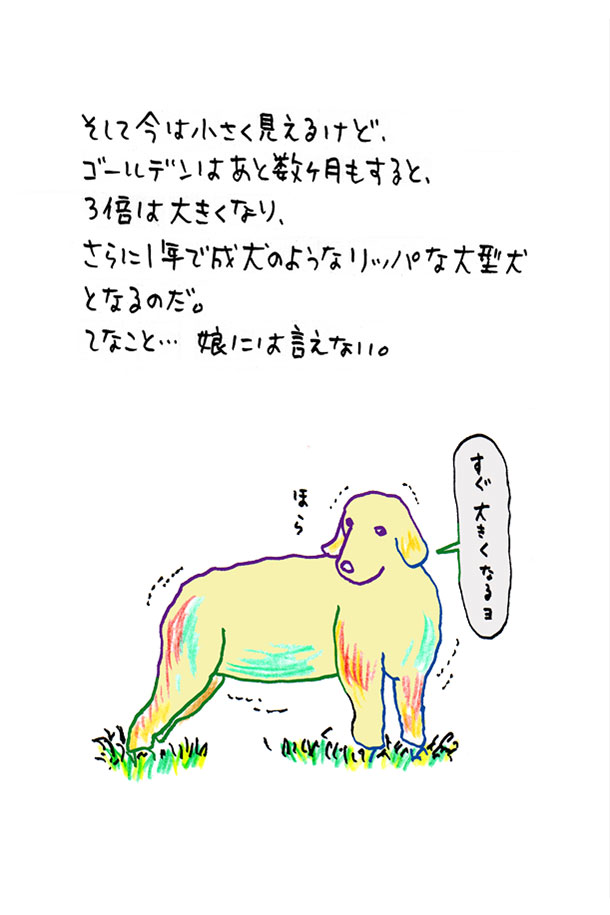 そして今は小さく見えるけど、
ゴールデンはあと数ヶ月もすると、
3倍は大きくなり、
さらに1年で成犬のようなリッパな大型犬
となるのだ。
てなこと… 娘には言えない。
ほら
すぐ大きくなるヨ